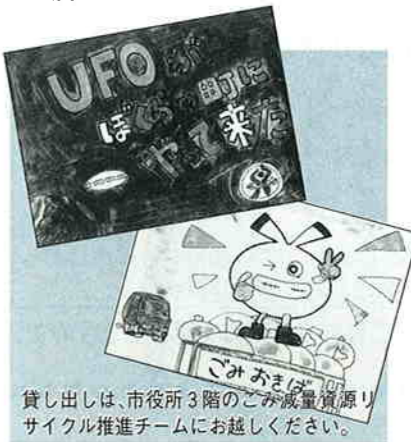 UFOが
ぼくらの町に
やって来た
ごみおきば
貸し出しは、市役所3階のごみ減量資源リ
サイクル推進チームにお越しください。